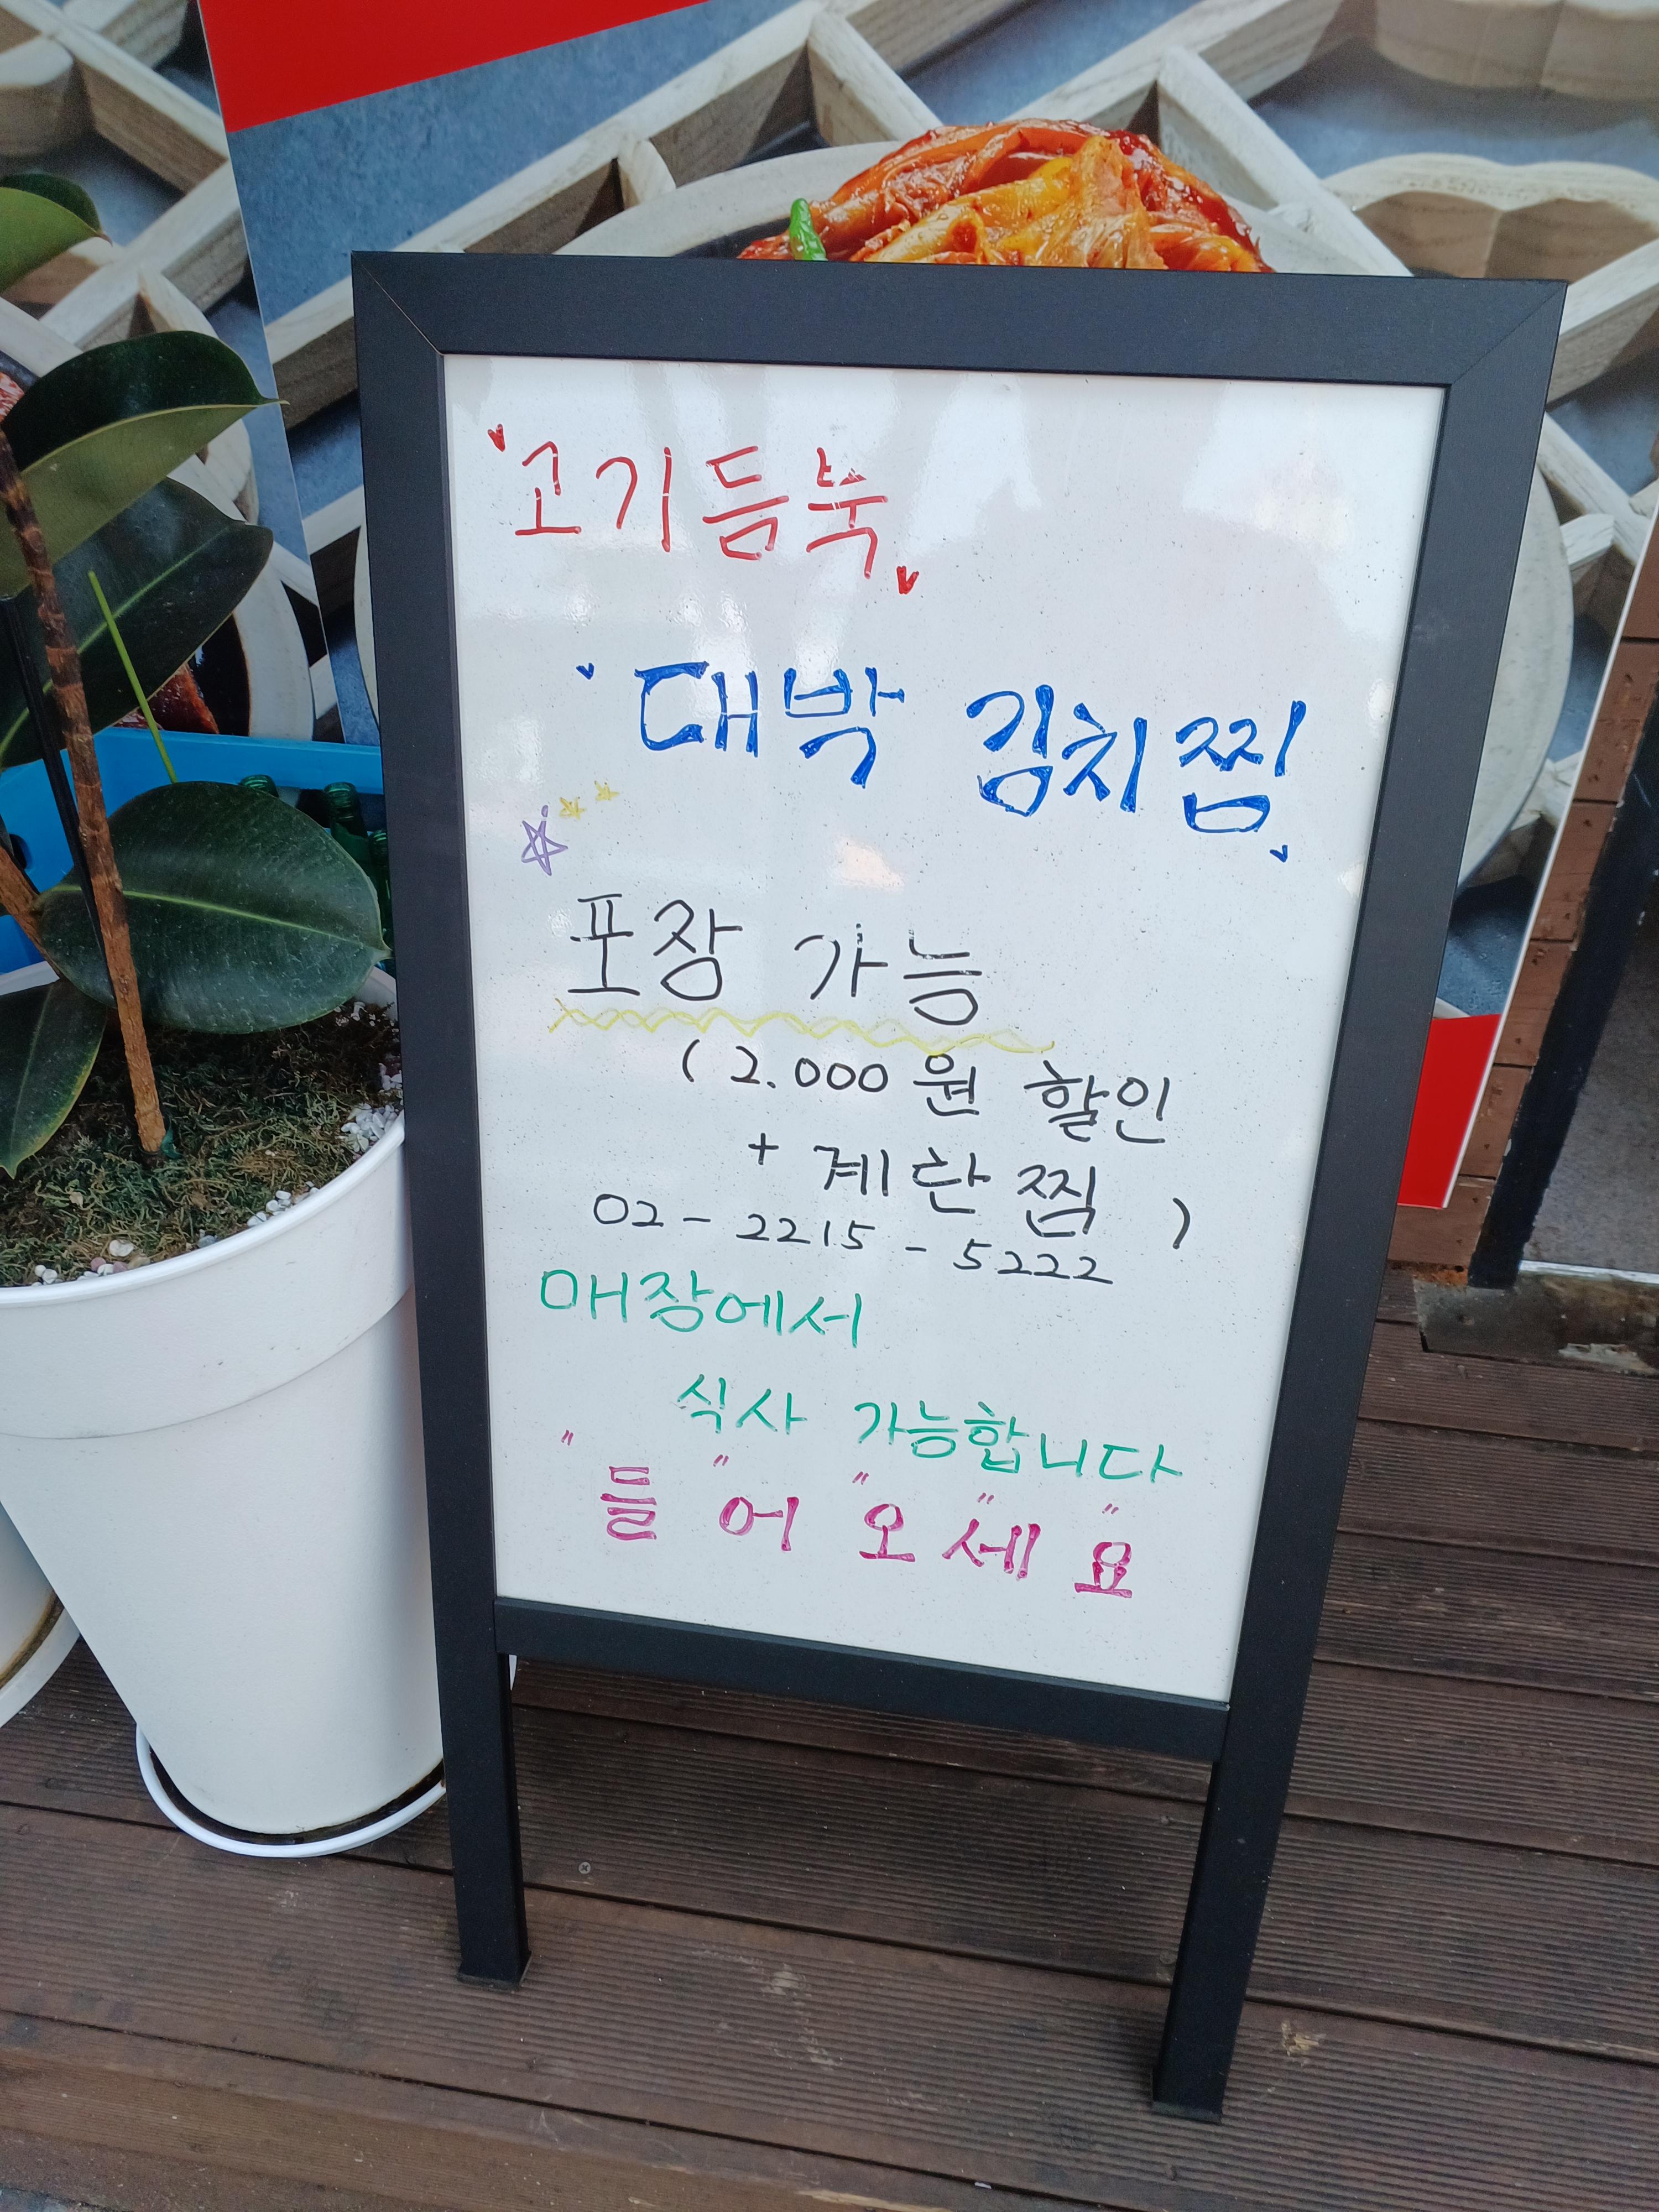 고기듬뿍
대박 김치찜
포장 가능
(2.000원 할인
+ 계란찜 )
02-2215-5222
매장에서
식사 가능합니다
"들"어"오"세"요